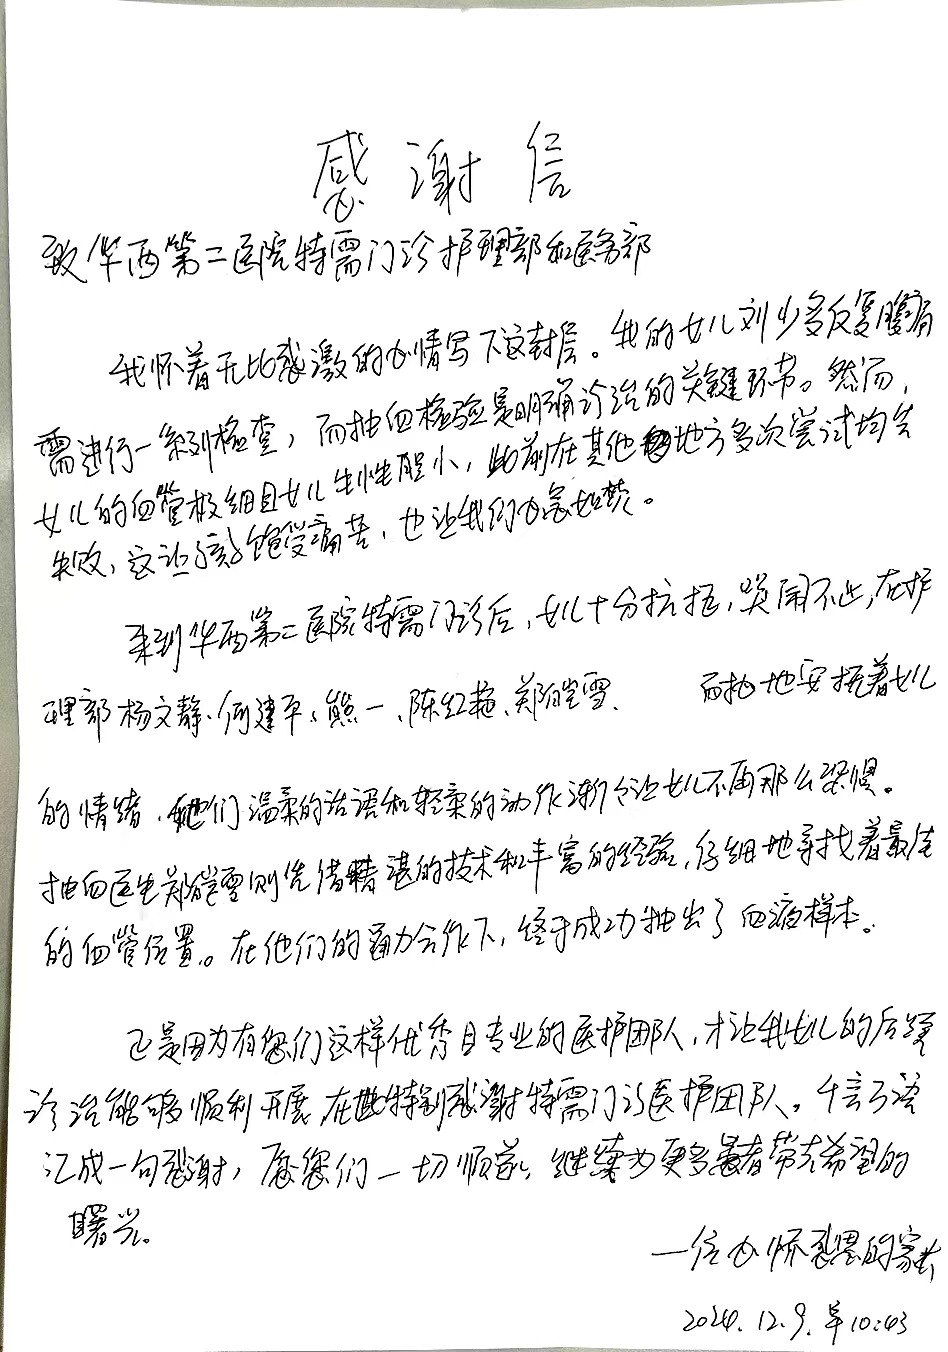 感谢信
致华西第二医院特需门诊护理部和医务部
我怀着无比感激的心情写下这封信。我的女儿刘少多反复腹痛
需进行一系列检查，而抽血检验是明确诊治的关键环节。然而，
女儿的血管极细且女儿生性胆小，此前在其他地方多次尝试均告
失败，这让孩子饱受痛苦，也让我们心急如焚。
来到华西第二医院特需门诊后，女儿十分抗拒，哭闹不止，在护
理部杨文静、何建平、熊一、陈红艳、郑皑雪、 而耐地安抚着女儿
的情绪，她们温柔的话语和轻柔的动作渐渐让女儿不再那么恐惧。
抽血医生郑皑雪则凭借精湛的技术和丰富的经验，仔细地寻找着最佳
的血管位置。在他们的通力合作下，终于成功抽出了血液样本。
正是因为有您们这样优秀且专业的医护团队，才让我女儿的后续
诊治能够顺利开展，在此特别感谢特需门诊医护团队。千言万语
汇成一句感谢，愿您们一切顺遂，继续为更多患者带去希望的
曙光。
一位心怀感恩的家长
2024.12.9.早10:43